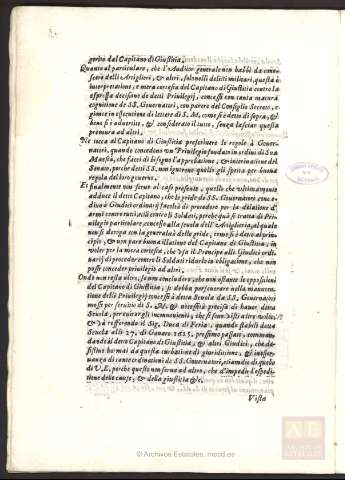 gerito dal Capitano di Giustitia.
Quanto al particulare, che l'Auditor generale non habbi da cono-
scere delli Artiglieri, & altri, solo nelli delitti militari, questa è
interpretatione, e mera corosa del Capitano di Giustitia contro la
espressa decisione de detti Privilegij, concessi con tanta matura
cognitione de SS. Governatori, con parere del Consiglio Secreto, e
gionte in essecutione di lettere di S. M. come si è detto di sopra, &
bene si è advertito, & considerato il tutto, senza lasciar questa
premura ad altri.
Ne tocca al Capitano di Giustitia prescriuere le regole à Gouer-
natori, quando concedono un Privilegio fondato in ordini di Sua
Maestà, che facci di bisogno l'approbatione, & interinatione del
Senato, perche detti SS. non ignorono quello gli spetta per buona
regola del loro gouerno.
Et finalmente non serue al caso presente, quello che vltimamente
adduce il detto Capitano, che le gride de SS. Gouernatori conce-
dino à Giudici ordinarij facoltà di procedere per la delatione d'
armi contro tutti, etiā contro li Soldati, perche quà si tratta di Pri-
uilegio particolare concesso alla scuola dell'Artiglieria, al quale
non si deroga con la generalità delle gride, come si è detto al prin-
cipio, & non pare buona illatione del Capitano di Giustitia, in
voler per la mera cortesia, che vsa il Principe alli Giudici ordi-
narij di proceder contro li Soldati ridurlo in obligatione, che non
posse conceder priuilegio ad altri.
Onde non resta altro, saluo concludere, che non ostante le oppositioni
del Capitano di Giustitia, si debba perseuerare nella manuten-
tione delli Priuilegij concessi à detta Scuola da SS. Gouernatori
mossi per seruitio di S. M. & necessità precisa di hauer detta
Scuola, per euitar gli inconuenienti, che si sono visti altre volte,
& và reassumendo il Sig. Duca di Feria, quando stabilì detta
Scuola alli 27. di Genaro 1625. prossimo passato, comman-
dando al detto Capitano di Giustitia, & altri Giudici, che de-
sistino homai da questa turbatione di giurisdittione, & inosser-
uanza di tante ordinationi de SS. Gouernatori, etiamdio di quella
di V. E. perche questo non serue ad altro, che d'impedir l'espedi-
tione delle cause, & della giustitia &c.
Vista
© Archivos Estatales, mecd.es